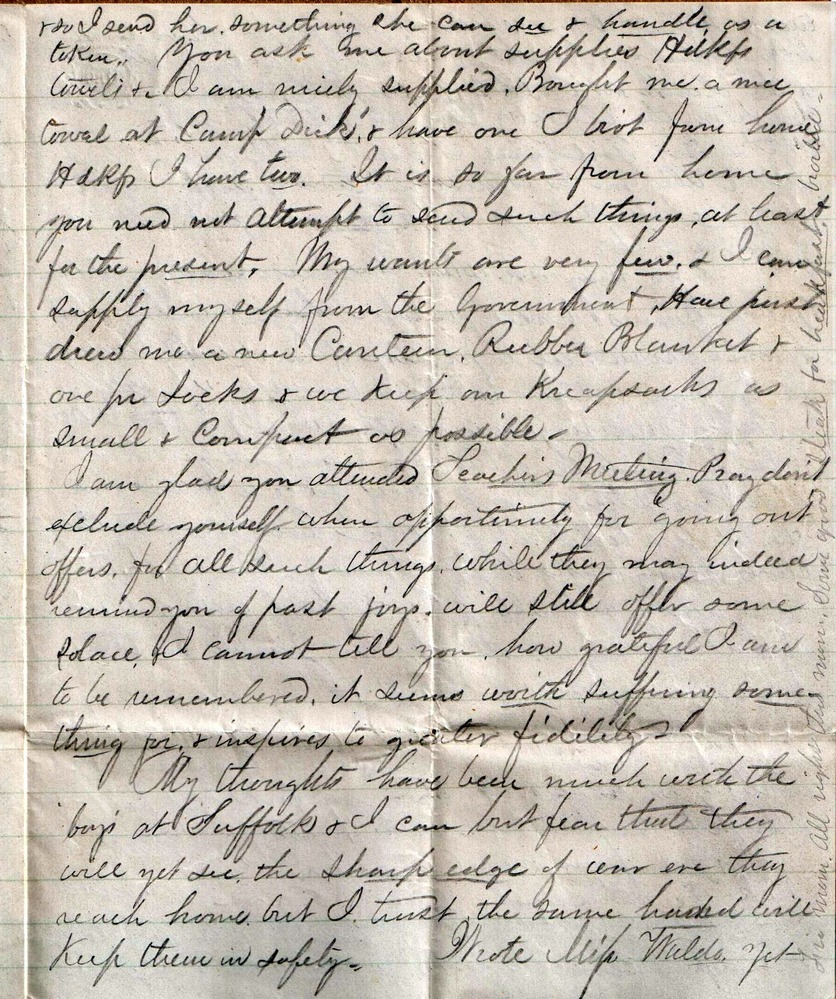 & so I send her something she can see & handle as a
token. You ask me about supplies Hdkfs
towels &. I am nicely supplied. Bought me a nice
towal at Camp Dick, & have one I brot from home
Hdkfs I have two. It is so far from home
you need not attempt to send such things, at least
for the present. My wants are very few. & I can
supply myself from the Government, Have just
drew me a new Canteen, Rubber Blanket &
one pr Socks & we keep our Knapsacks as
small & Compact as possible -
I am glad you attended Teachers Meeting. Pray don't
exclude yourself when opportunity for going out
offers, for all such things, while they may indeed
remind you of past joys, will still offer some
solace. I cannot tell you, how grateful I am
to be remembered, it seems worth suffering some-
thing for, & inspires to greater fidelity
My thoughts have been much with the
boys at Suffolk & I can but fear that they
will yet see the sharp edge of war ere they
reach home, but I trust the same hand will
Keep them in safety - Wrote Miss Waldo. yet
All right this morn. Some good steak for breakfast,